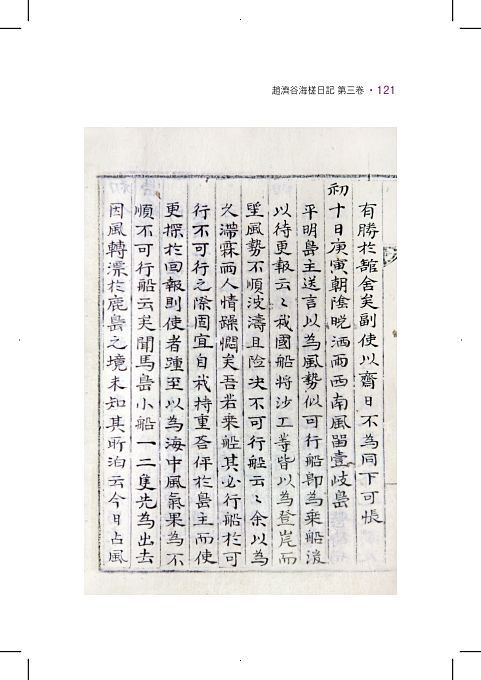 趙濟谷海槎日記 第三卷 · 121
有勝於舘舍矣副使以齋日不為同下可悵
初十日庚寅朝陰晩洒雨西南風留壹岐島
平明島主送言以為風勢似可行船卽為乘船後
以待更報云云我國船將沙工等皆以為登岸而
望風勢不順波濤且險决不可行船云云余以為
久滯霖雨人情躁悶矣吾若乘船其必行船於可
行不可行之際固宜自我持重答伻於島主而使
更探於回報則使者踵至以為海中風氣果為不
順不可行船云矣聞馬島小船一二隻先為出去
因風轉漂於鹿島之境未知其所泊云今日占風